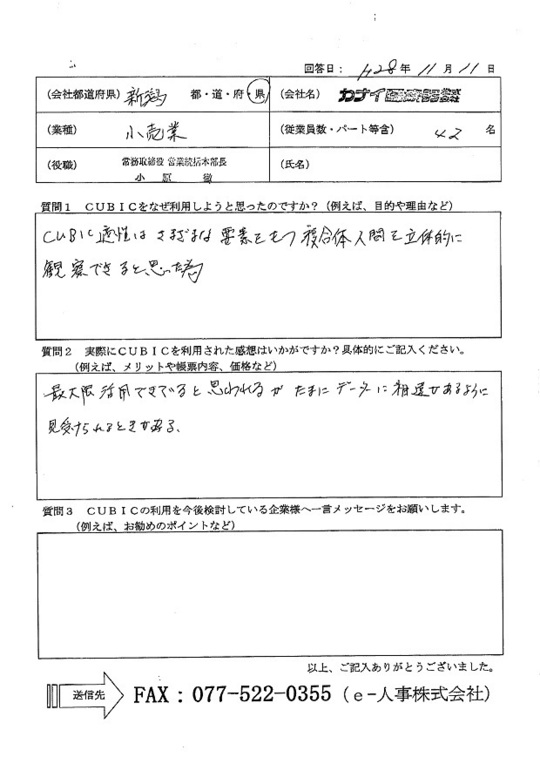 回答日： H28年 11月 11日
（会社都道府県） 新潟 都・道・府・県 （会社名） カナイ
（業種） 小売業 （従業員数・パート等含） 42 名
（役職） 常務取締役 営業統括本部長 （氏名）
小 原 徹
質問１　ＣＵＢＩＣをなぜ利用しようと思ったのですか？（例えば、目的や理由など）
CUBIC適性は さまざまな 要素をもつ 複合体人間を立体的に
観察できると、思った為
質問２　実際にＣＵＢＩＣを利用された感想はいかがですか？具体的にご記入ください。
（例えば、メリットや帳票内容、価格など）
最大限 活用できてると思われるが たまに データーに 相違があるように
見受けられるときがある、
質問３　ＣＵＢＩＣの利用を今後検討している企業様へ一言メッセージをお願いします。
（例えば、お勧めのポイントなど）
以上、ご記入ありがとうございました。
送信先 FAX：077-522-0355（ｅ−人事株式会社）